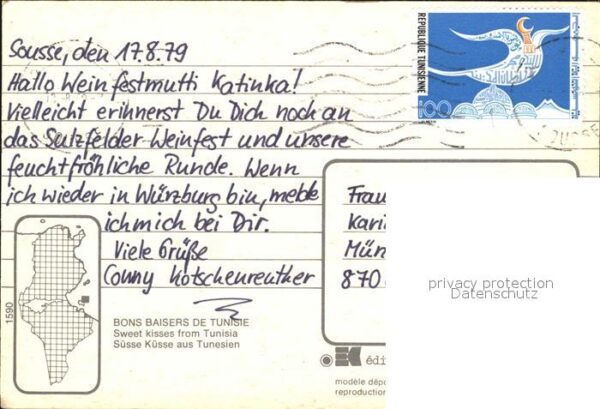 Sousse, den 17.8.79
Hallo Weinfestmutti Katinka!
Vielleicht erinnerst Du Dich noch an
das Sulzfelder Weinfest und unsere
feuchtfröhliche Runde. Wenn
ich wieder in Würzburg bin, melde
ich mich bei Dir.
Viele Grüße
Conny Kotschenreuther
REPUBLIQUE TUNISIENNE
100
SOUSSE
Frau
Kari
Mün
870
privacy protection
Datenschutz
1590
BONS BAISERS DE TUNISIE
Sweet kisses from Tunisia
Süsse Küsse aus Tunesien
édi
modèle dépo
reproduction